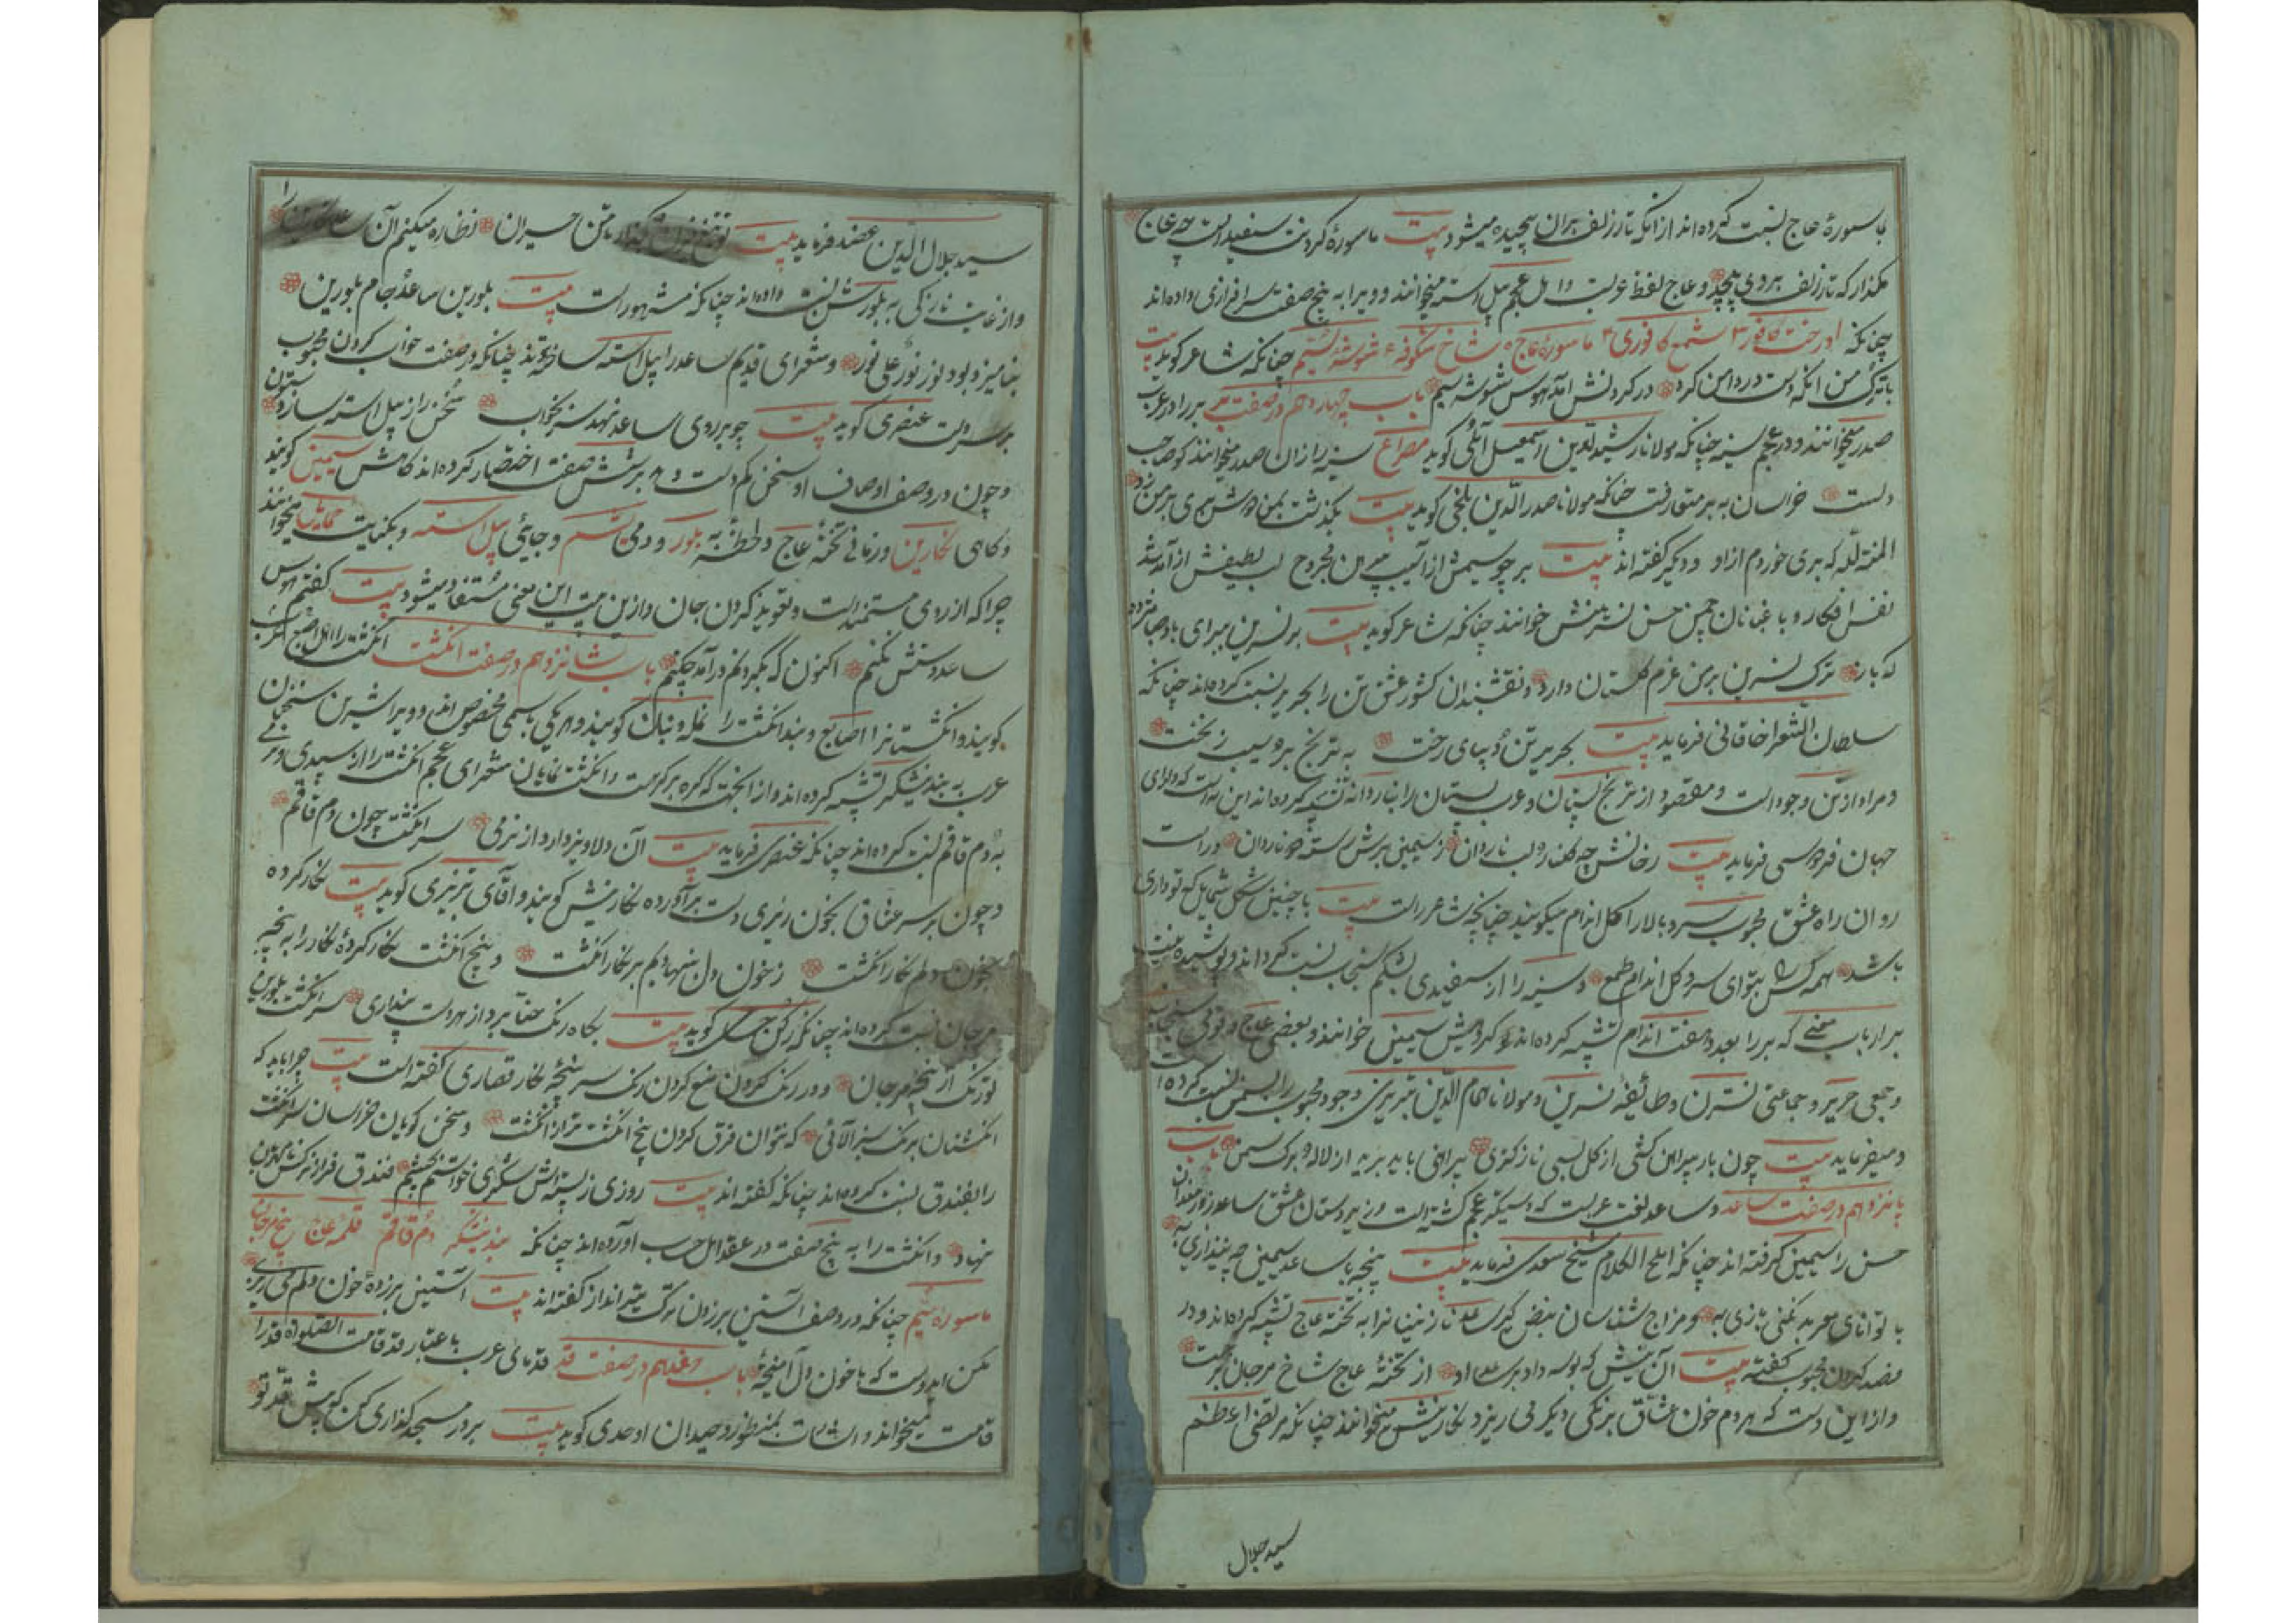 با سوره عاج نسبت کرده‌اند از آنکه تار زلف بر آن پیچیده میشود بیت ماسوره گردنت سفیدست چو عاج
مگذار که تار زلف بر وی پیچد و عاج لفظ عربست و اهل عجم پیل استه میخوانند و ویرا به پنج صفت سرافرازی داده‌اند
چنانکه درخت کافور ۲ شمع کافوری ۳ ماسوره عاج ۴ شاخ شکوفه ۵ شوشه سیم چنانکه شاعر گوید بیت
با ترک من آنکه دست در دامن کرد در گردنش آمد هوس شوشه سیم باب چهاردهم در صفت بر بر را در عرب
صدر میخوانند و در عجم سینه چنانکه مولانا رشیدالدین اسمعیل گوید مصراع سینه را زان صدر میخوانند کو صاحب
دلست خراسان به بر متعارفست چنانکه مولانا صدرالدین بلخی گوید بیت بگذشت بمن
المنة لله که بری خوردم از او و دیگر گفته‌اند بیت بر چو سیمش از آسیب پیرهن مجروح لب لطیفش از آمد شد
نفس افکار و باغبانان چمن حسن نسترنش خوانند چنانکه شاعر گوید بیت بر نسرین برای باد
که باز ترک نسرین بر من عزم گلستان دارد و نقشبندان کشور عشق تن را بحریر نسبت کرده‌اند چنانکه
سلطان الشعرا خاقانی فرماید بیت بحریر تن و دیبای رخت به ترنج بر و سیب زنخت
و مراد از تن وجودست و مقصود از ترنج پستان و عرب پستان را بناردانه تشبیه کرده‌اند
جهان فردوسی فرماید بیت رخانش چو گلنار و لب ناردان ز سیمین برش رسته دو ناردان
روان راه عشق محبوب سروبالا را گل اندام میگویند چنانچه شاعر راست بیت با چنین شکل شمایل که تو داری
باشد همه کس را بتو ای سرو گل اندام طمع و سینه را از سفیدی بشکم سنجاب نسبت کرده‌اند و پوشیده نیست
بر ارباب معنی که بر را بعدد هفت اندام تشبیه کرده‌اند گروهیش سیمین خوانند و بعضی عاج و قومی سنجاب
و جمعی حریر و جماعتی نسترن و طایفه نسرین و مولانا همام الدین تبریزی وجود محبوب را بسمن نسبت کرده است
و میفرماید بیت چون بار پیراهن کشی از گل بسی نازکتری پیراهنی باید بریده از لاله و برگ سمن باب
پانزدهم در صفت ساعد و ساعد لغت عربست که دستگیر عجم گشته است و زبردستان عشق ساعد زورمندان
حسن را سیمین گرفته‌اند چنانکه املح الکلام شیخ سعدی فرماید بیت پنجه با ساعد سیمین چو نیندازی به
با توانای معربد نکنی بازی به و مزاج شناسان نبض گیری ساعد نازنینانرا به تخته عاج تشبیه کرده‌اند و در
فصد کردن محبوب گفته بیت آن نیش که بوسه داد بر ساعد او از تخته عاج شاخ مرجان بر جست
و از این دست که هر دم خون عشاق برنگی دیگر می ریزد نگارینش میخوانند چنانکه مرتضی اعظم
سید جلال
سید جلال الدین عضد فرماید بیت حیران نظاره میکنم آن را
و از غایت نازکی به بلورش نسبت داده‌اند چنانکه مشهورست بیت بلورین ساعد جام بلورین
بیامیزد بود نور علی نور و شعرای قدیم ساعد را پیلاسته ساخته‌اند چنانکه در صفت خواب کردن محبوب
بر سر دست عنصری گوید بیت چو بر روی ساعد نهد سر بخواب سمن را ز پیل استه سازد ستون
و چون در وصف اوصاف او سخن کم دست داد بر شش صفت اختصار کرده‌اند گاهش سیمین گویند
و گاهی نگارین و زمانی تخته عاج و لحظه‌ای به بلور و دمی سیم و جائی پیل استه و بکنایت حمایل میخوانند
چرا که از روی مستمندیست و تعویذ گردن جان و ازین بیت این معنی مستفاد میشود بیت گفتم هوس
ساعد دستش نکنم اکنون که بگردنم درآمد چکنم باب شانزدهم در صفت انگشت انگشت را اهل عرب اصبع
گویند و انگشتانرا اصابع و بند انگشت را نمل و بنان گویند و هر یکی باسمی مخصوص‌اند و ویرا شیرین سخنان
عرب به بند نیشکر تشبیه کرده‌اند و از آنجهت که گره بر گرهست و انگشت نمایان شعرای عجم انگشت را از سپیدی و نرمی
به دم قاقم نسبت کرده‌اند چنانکه عنصری فرماید بیت آن دلاویز دارد از نرمی سر انگشت چون دم قاقم
و چون بر سر عشاق بخون ریزی دست برآورده نگارینش گویند و آقای تبریزی گوید بیت نگار کرده
بخون دلم نگار انگشت ز خون دل ننهاده‌ام بر نگار انگشت و پنج انگشت نگار کرده نگار را به پنجه
مرجان نسبت کرده‌اند چنانکه گوید بیت بگاه رنگ حنا بر دو از هر دست پنداری سر انگشت بلورین
تو رنگ از پنجه مرجان و در رنگ کردن منع کردن رنگ سرپنجه نگار قصاری گفته است بیت چرا باید که
انگشتان برنگ سبز آلائی که نتوان فرق کردن پنج انگشت ترا ز انگشت و سخن گویان خراسان سر انگشت
را بفندق نسبت کرده‌اند چنانکه گفته‌اند بیت روزی ز پسته‌اش شکری خواستم بچشم فندق فراز نرگس نامهربان
نهاد و انگشت را به پنج صفت در عقد اهل حساب آورده‌اند چنانکه بند نیشکر دم قاقم قلمه عاج پنجه مرجان
ماسوره سیم چنانکه در وصف آستین بر زدن ترک تیرانداز گفته‌اند بیت آستین بر زده خون دلم می ریزی
مکن ای دوست که با خون دل آمیخته باب هفدهم در صفت قد قدمای عرب باعتبار قد قامت الصلوة قد را
قامت میخوانند و اثبات بمنظور وحیدان اوحدی گوید بیت بر در مسجد گذاری کن که پیش قد تو